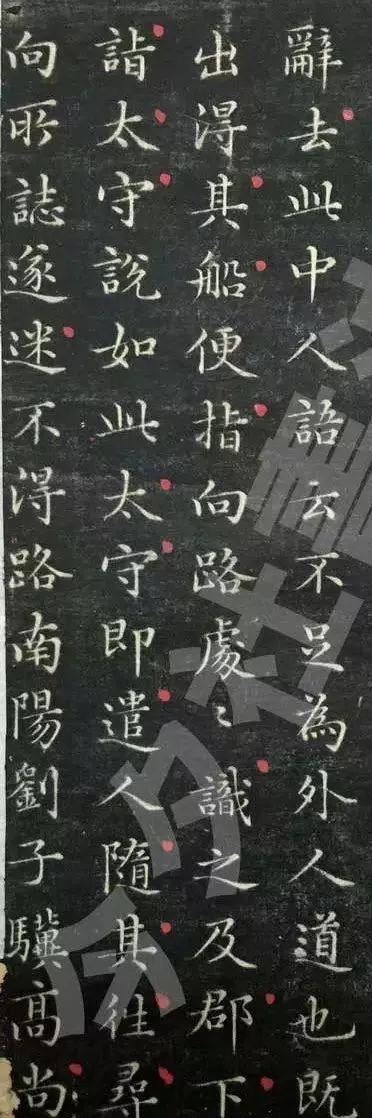 辭去此中人語云不足為外人道也既
出得其船便指向路處〻識之及郡下
詣太守說如此太守即遣人隨其往尋
向所誌遂迷不得路南陽劉子驥高尚